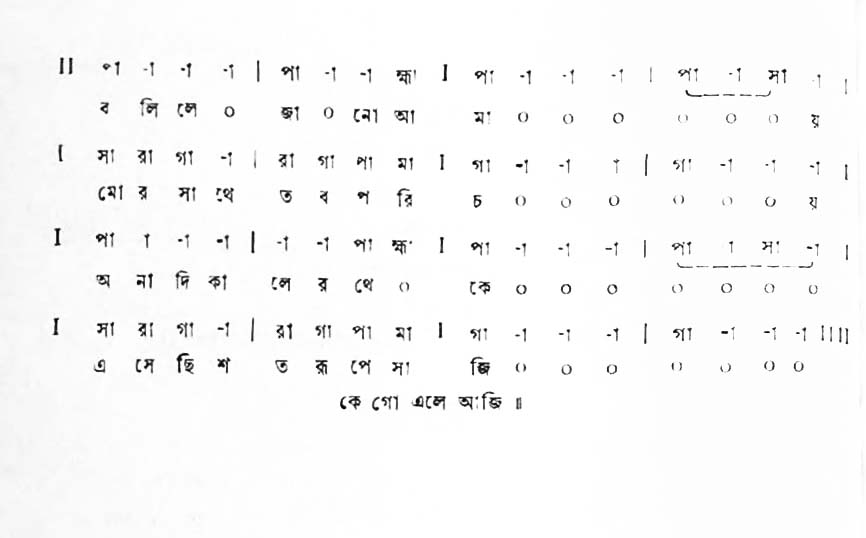 II পা -া -া -া | পা -া -া হ্মা I পা -া -া -া | পা -া সা -া I
ব লি লে ০ জা ০ নো আ মা ০ ০ ০ ০ ০ ০ য়
I সা রা গা -া | রা গা পা মা I গা -া -া া | গা -া -া -া I
মো র সা থে ত ব প রি চ ০ ০ ০ ০ ০ ০ য়
I পা া -া -া | -া -া পা হ্মা I পা -া -া -া | পা া সা -া I
অ না দি কা লে র থে ০ কে ০ ০ ০ ০ ০ ০ ০
I সা রা গা -া | রা গা পা মা I গা -া -া -া | গা -া -া -া IIII
এ সে ছি শ ত রূ পে সা জি ০ ০ ০ ০ ০ ০ ০
কে গো এলে আজি ॥